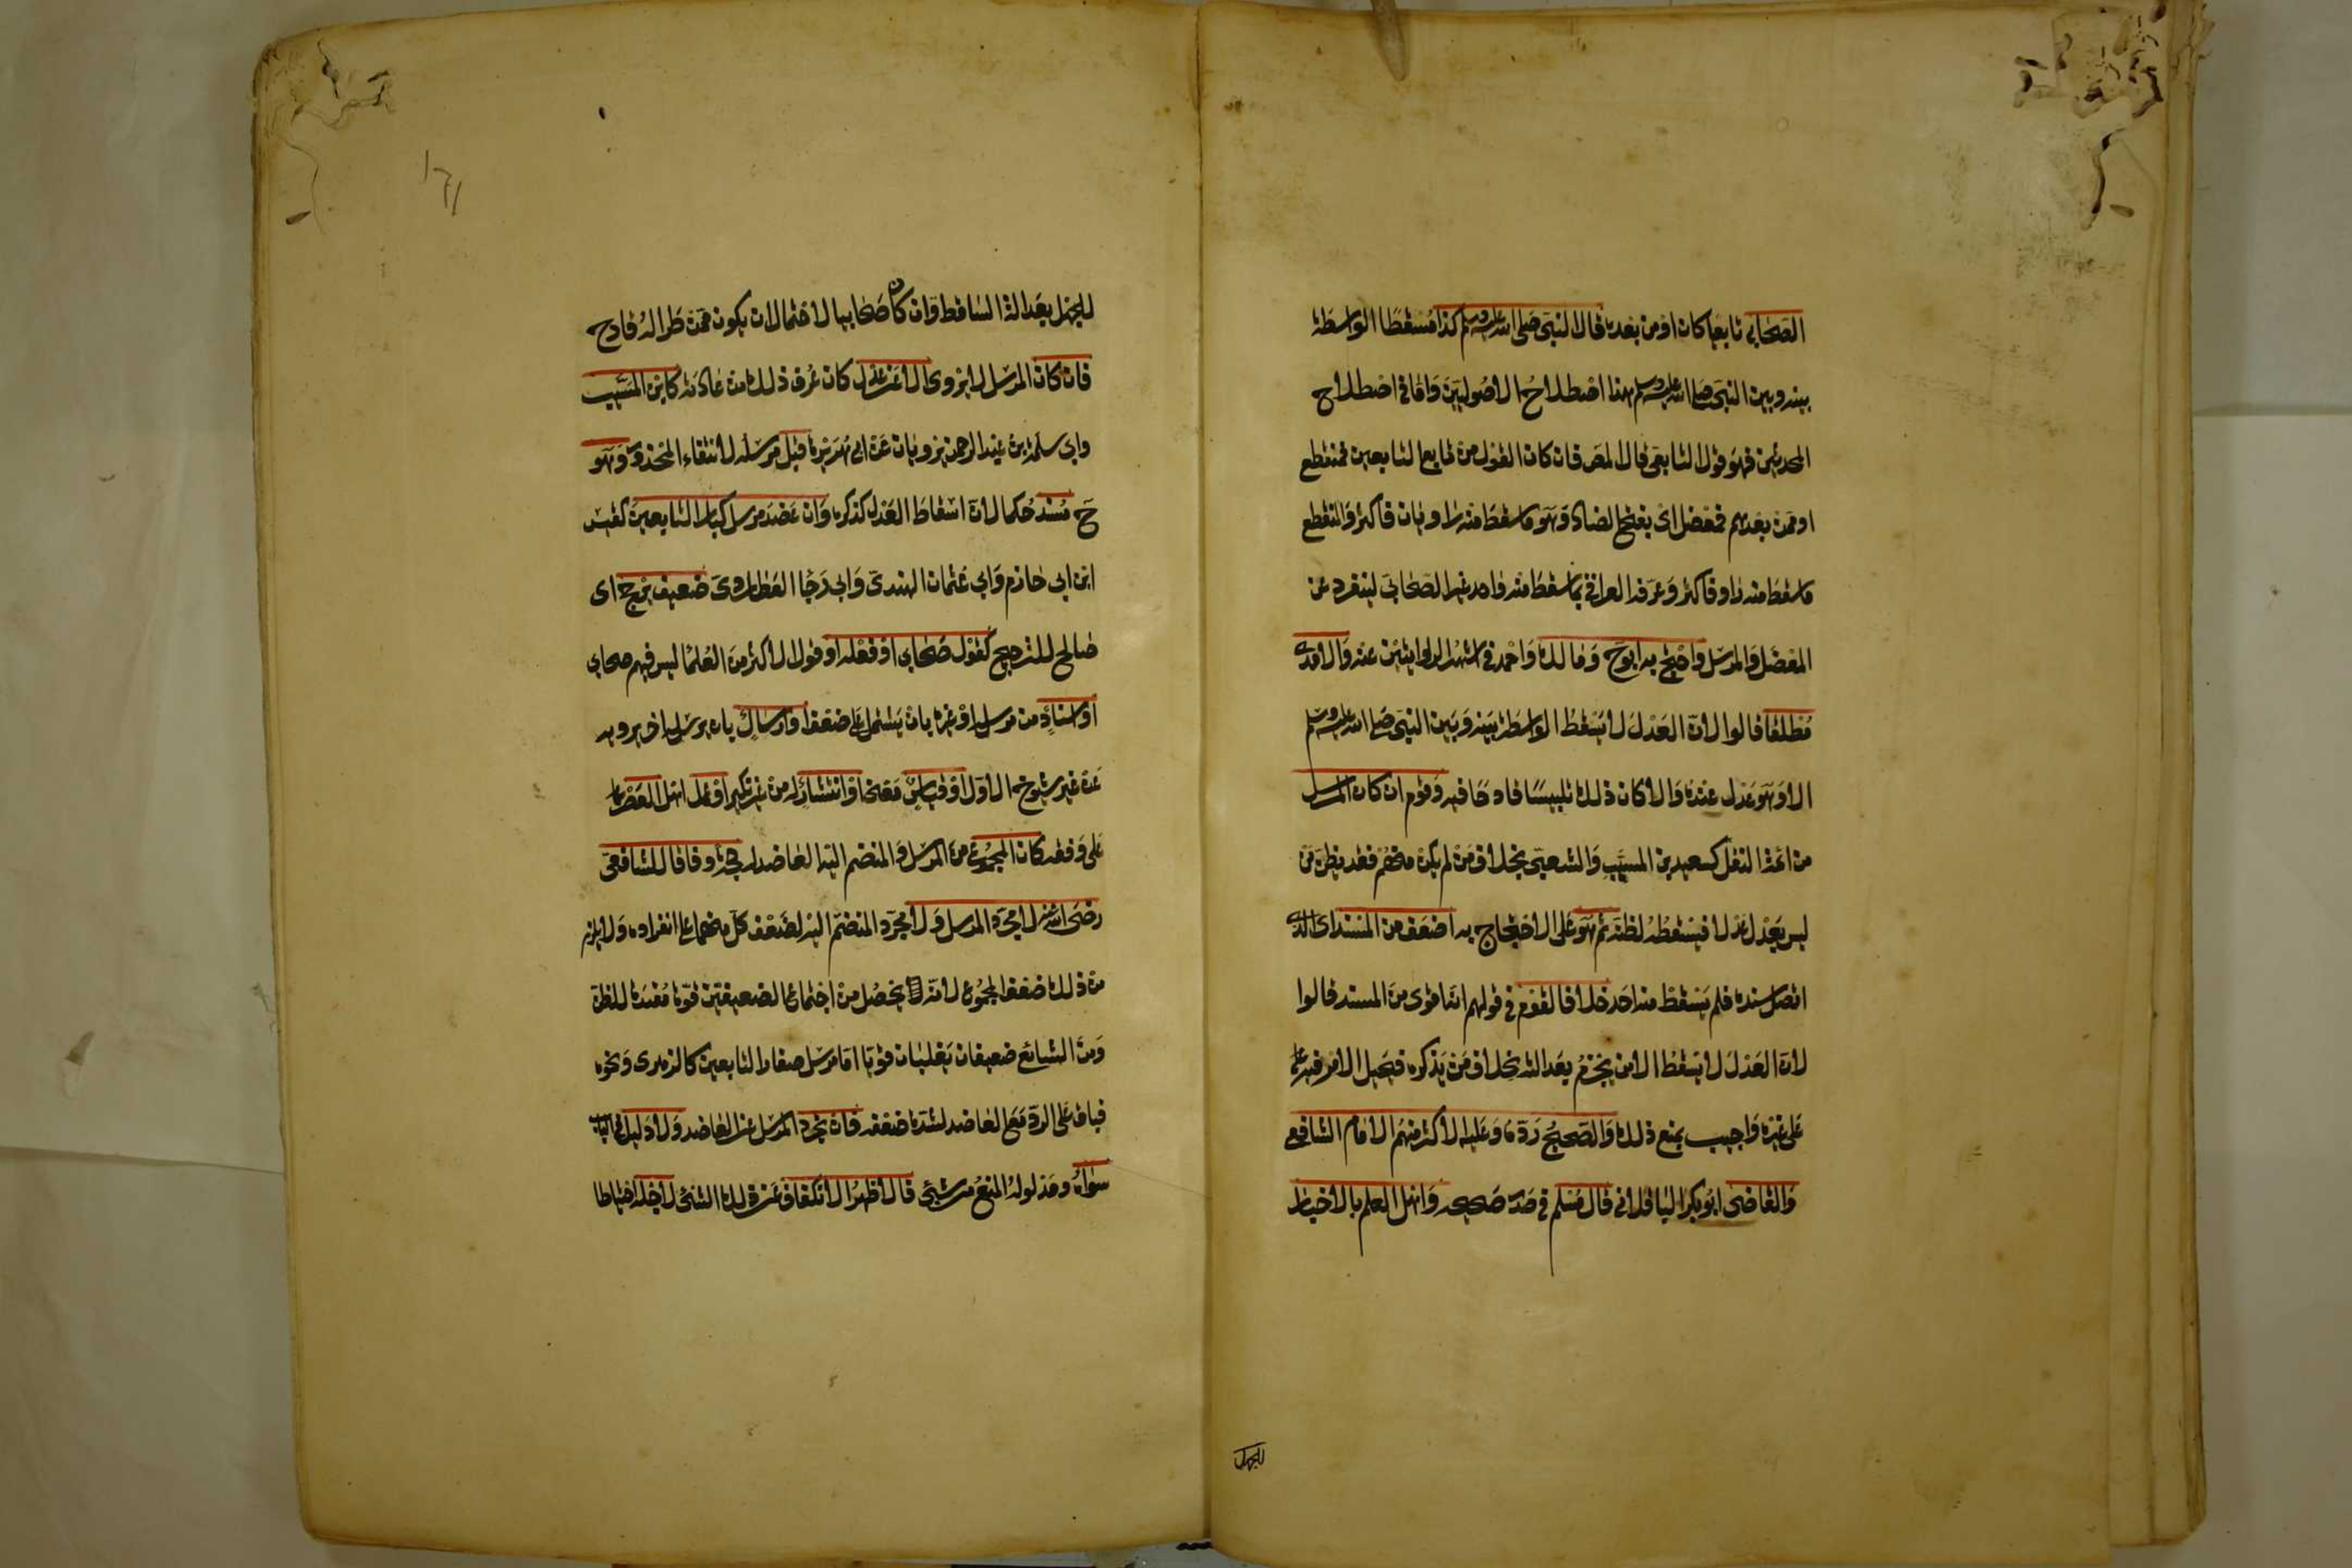 الصحابي تابعيا كان او من بعده قال النبي صلى الله عليه وسلم كذا مسقطا الواسطة
بينه وبين النبي صلى الله عليه وسلم هذا اصطلاح الاصوليين واما في اصطلاح
المحدثين فهو قول التابعي قال المص فان كان القول من تابع التابعين فمنقطع
او ممن بعدهم فمعضل اى بفتح الضاد وهو ما سقط منه راويان فاكثر والمنقطع
ما سقط منه راو فاكثر وعرفه العراقي بما سقط منه واحد غير الصحابي لينفرد عن
المعضل والمرسل واحتج به ابو ح ومالك واحمد في اشهر الروايتين عنه والامدى
مطلقا قالوا لان العدل لا يسقط الواسطة بينه وبين النبي صلى الله عليه وسلم
الا وهو عدل عنده والا كان ذلك تلبيسا قادحا فيه وقوم ان كان المرسل
من ائمة النقل كسعيد بن المسيب والشعبي بخلاف من لم يكن منهم فقد يظن من
ليس بعدل عدلا فيسقطه لظنه ثم هو على الاحتجاج به اضعف من المسند اى الذى
اتصل سنده فلم يسقط منه احد خلافا لقوم في قولهم انه اقوى من المسند قالوا
لان العدل لا يسقط الا من يجزم بعدالته بخلاف من يذكره فيحيل الامر فيه
على غيره واجيب بمنع ذلك والصحيح رده وعليه الاكثر منهم الامام الشافعي
والقاضى ابو بكر الباقلاني قال مسلم في صدر صحيحه واهل العلم بالاخبار
للجهل
للجهل بعدالة الساقط وان كان صحابيا لاحتمال ان يكون ممن طرا له قادح
فان كان المرسل لا يروى الا عن عدل كان عرف ذلك من عادته كابن المسيب
وابي سلمة بن عبد الرحمن يرويان عن ابي هريرة قبل مرسله لانتفاء المحذور وهو
ح مسند حكما لان اسقاط العدل كذكره وان عضد مرسل كبار التابعين كقيس
ابن ابي حازم وابي عثمان الهندي وابي رجا العطاردى ضعيف يرجح اى
صالح للترجيح كقول صحابي او فعله او قول الاكثر من العلما ليس فيهم صحابي
او اسناد من مرسله او غيره بان يشتمل على ضعف او ارسال بان يرسله اخر يرويه
عن غير شيوخ الاول او قياس معنى او انتشار له من غير نكير او عمل اهل العصر
على وفقه كان المجموع من المرسل والمنضم اليه العاضد له حجة وفاقا للشافعي
رضى الله عنه لا مجرد المرسل ولا مجرد المنضم اليه لضعف كل منهما على انفراده ولا يلزم
من ذلك ضعف المجموع لانه يحصل من اجتماع الضعيفين قوة مفيدة للظن
ومن الشائع ضعيفان يغلبان قويا اما مرسل صغار التابعين كالزهرى ونحوه
فباق على الرد مع العاضد لشدة ضعفه فان تجرد المرسل عن العاضد ولا دليل في الباب
سواه ومدلوله المنع من شيئ قال اظهر الانكفاف عن ذلك الشئ لاجله احتياطا